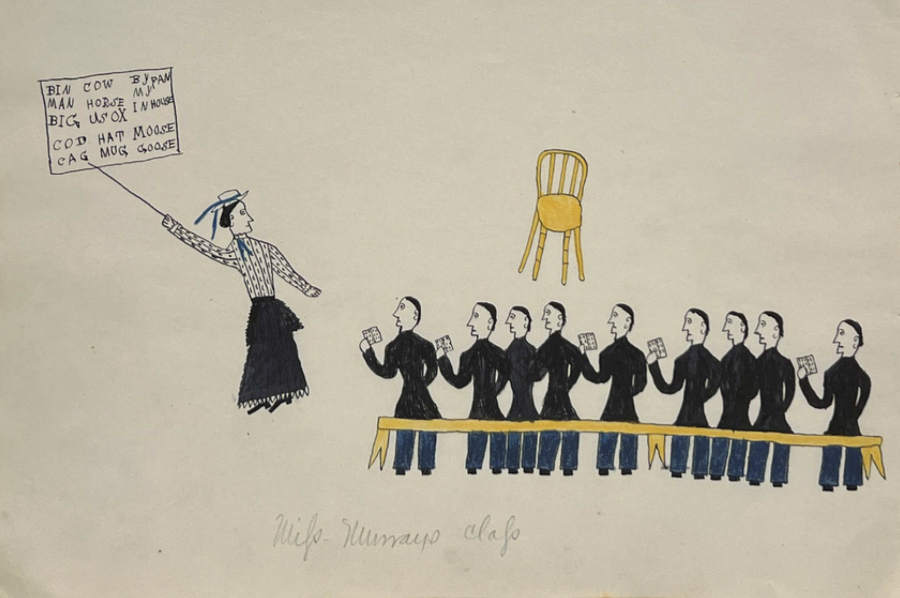 BIN COW BY PAN
MAN HORSE MY
BIG US OX IN HOUSE
COD HAT MOOSE
CAG MUG GOOSE
Miss-Murrays class